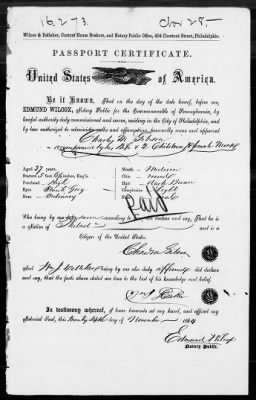 16273
Wilcox & Dolleker, Custom House Brokers, and Notary Public Office, 404 Chestnut Street, Philadelphia.
PASSPORT CERTIFICATE.
United States of America.
Be it Known, That on the day of the date hereof, before me,
EDMUND WILCOX, Notary Public for the Commonwealth of Pennsylvania, by
lawful authority duly commissioned and sworn, residing in the City of Philadelphia, and
by law authorized to administer oaths and affirmations, personally came and appeared
Charles M. Gibson
accompanied by his Wife & 2 Children
Aged 27 years
Stature feet inches, Eng.
Forehead High
Eyes
Nose Ordinary
Mouth Medium
Chin
Hair Dark Brown
Complexion Light
Face
Paid
Who being by me duly sworn did declare and say, That he is
a Native of and a
Citizen of the United States.
Chas M Gibson
And Wm J being by me also duly affirmed did declare
and say, that the facts above stated are true, to the best of his knowledge and belief.
In testimony whereof, I have hereunto set my hand, and affixed my
Notarial Seal, this Twenty fifth day of November 1864
Edmund Wilcox
Notary Public.